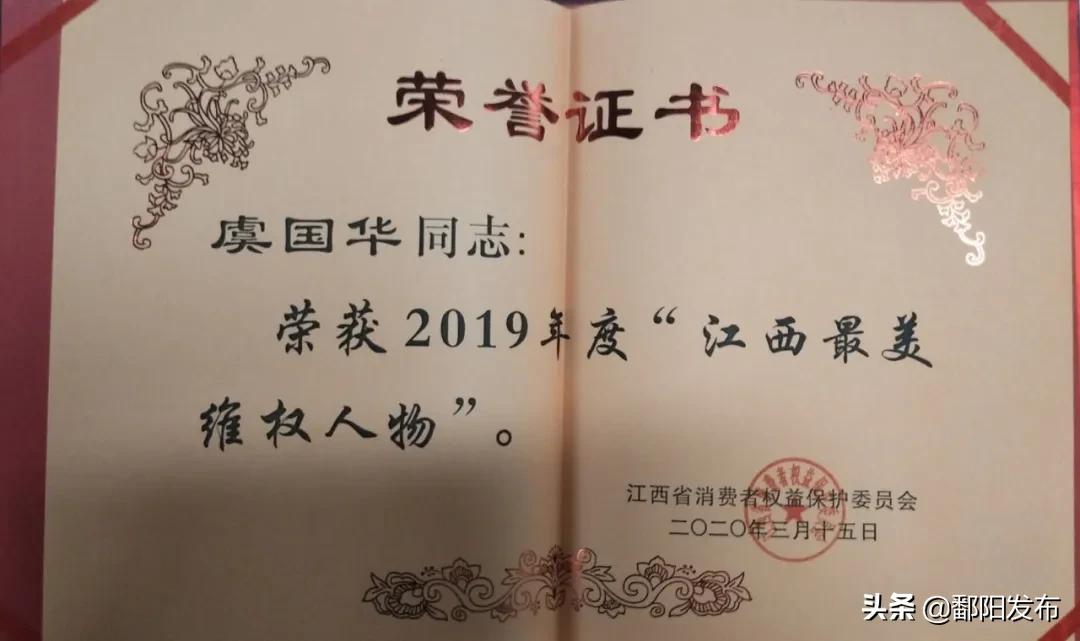 荣誉证书
虞国华同志：
荣获2019年度“江西最美
维权人物”。
江西省消费者权益保护委员会
二〇二〇年三月十五日
头条 @鄱阳发布